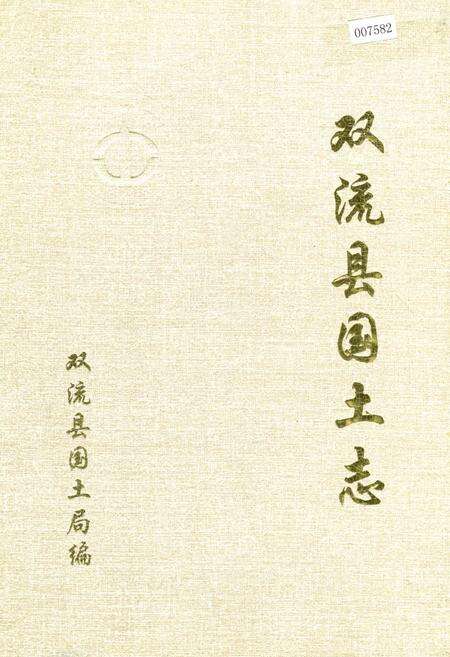 007582
双流县国土志
双流县国土局编